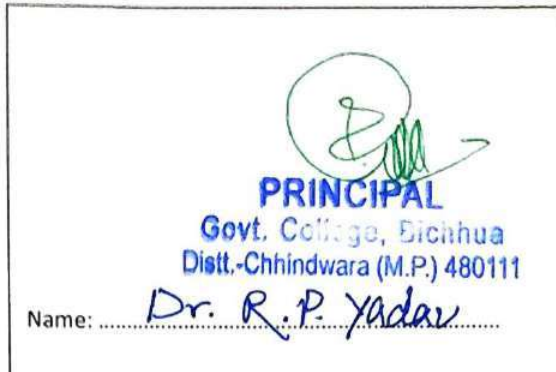 PRINCIPAL
Govt. College, Bichhua
Distt.-Chhindwara (M.P.) 480111
Name: Dr. R.P. Yadav